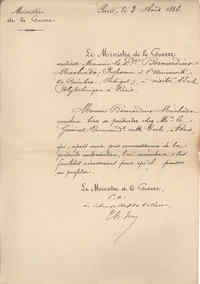 Ministère
de la Guerre
Paris, le 2 Août 188
Le Ministre de la Guerre
autorise Monsieur le Dr Bernardino
Machado, Professeur à l'Université
de Coimbra, (Portugal), à visiter l'École
Polytechnique à Paris.
Monsieur Bernardino Machado
voudra bien se présenter chez Mr le
Général Commandant cette École, à Paris,
qui, après avoir pris connaissance de la
présente autorisation, lui
facilités nécessaires pour qu'il puisse
en profiter.
Le Ministre de la Guerre,
P. O.